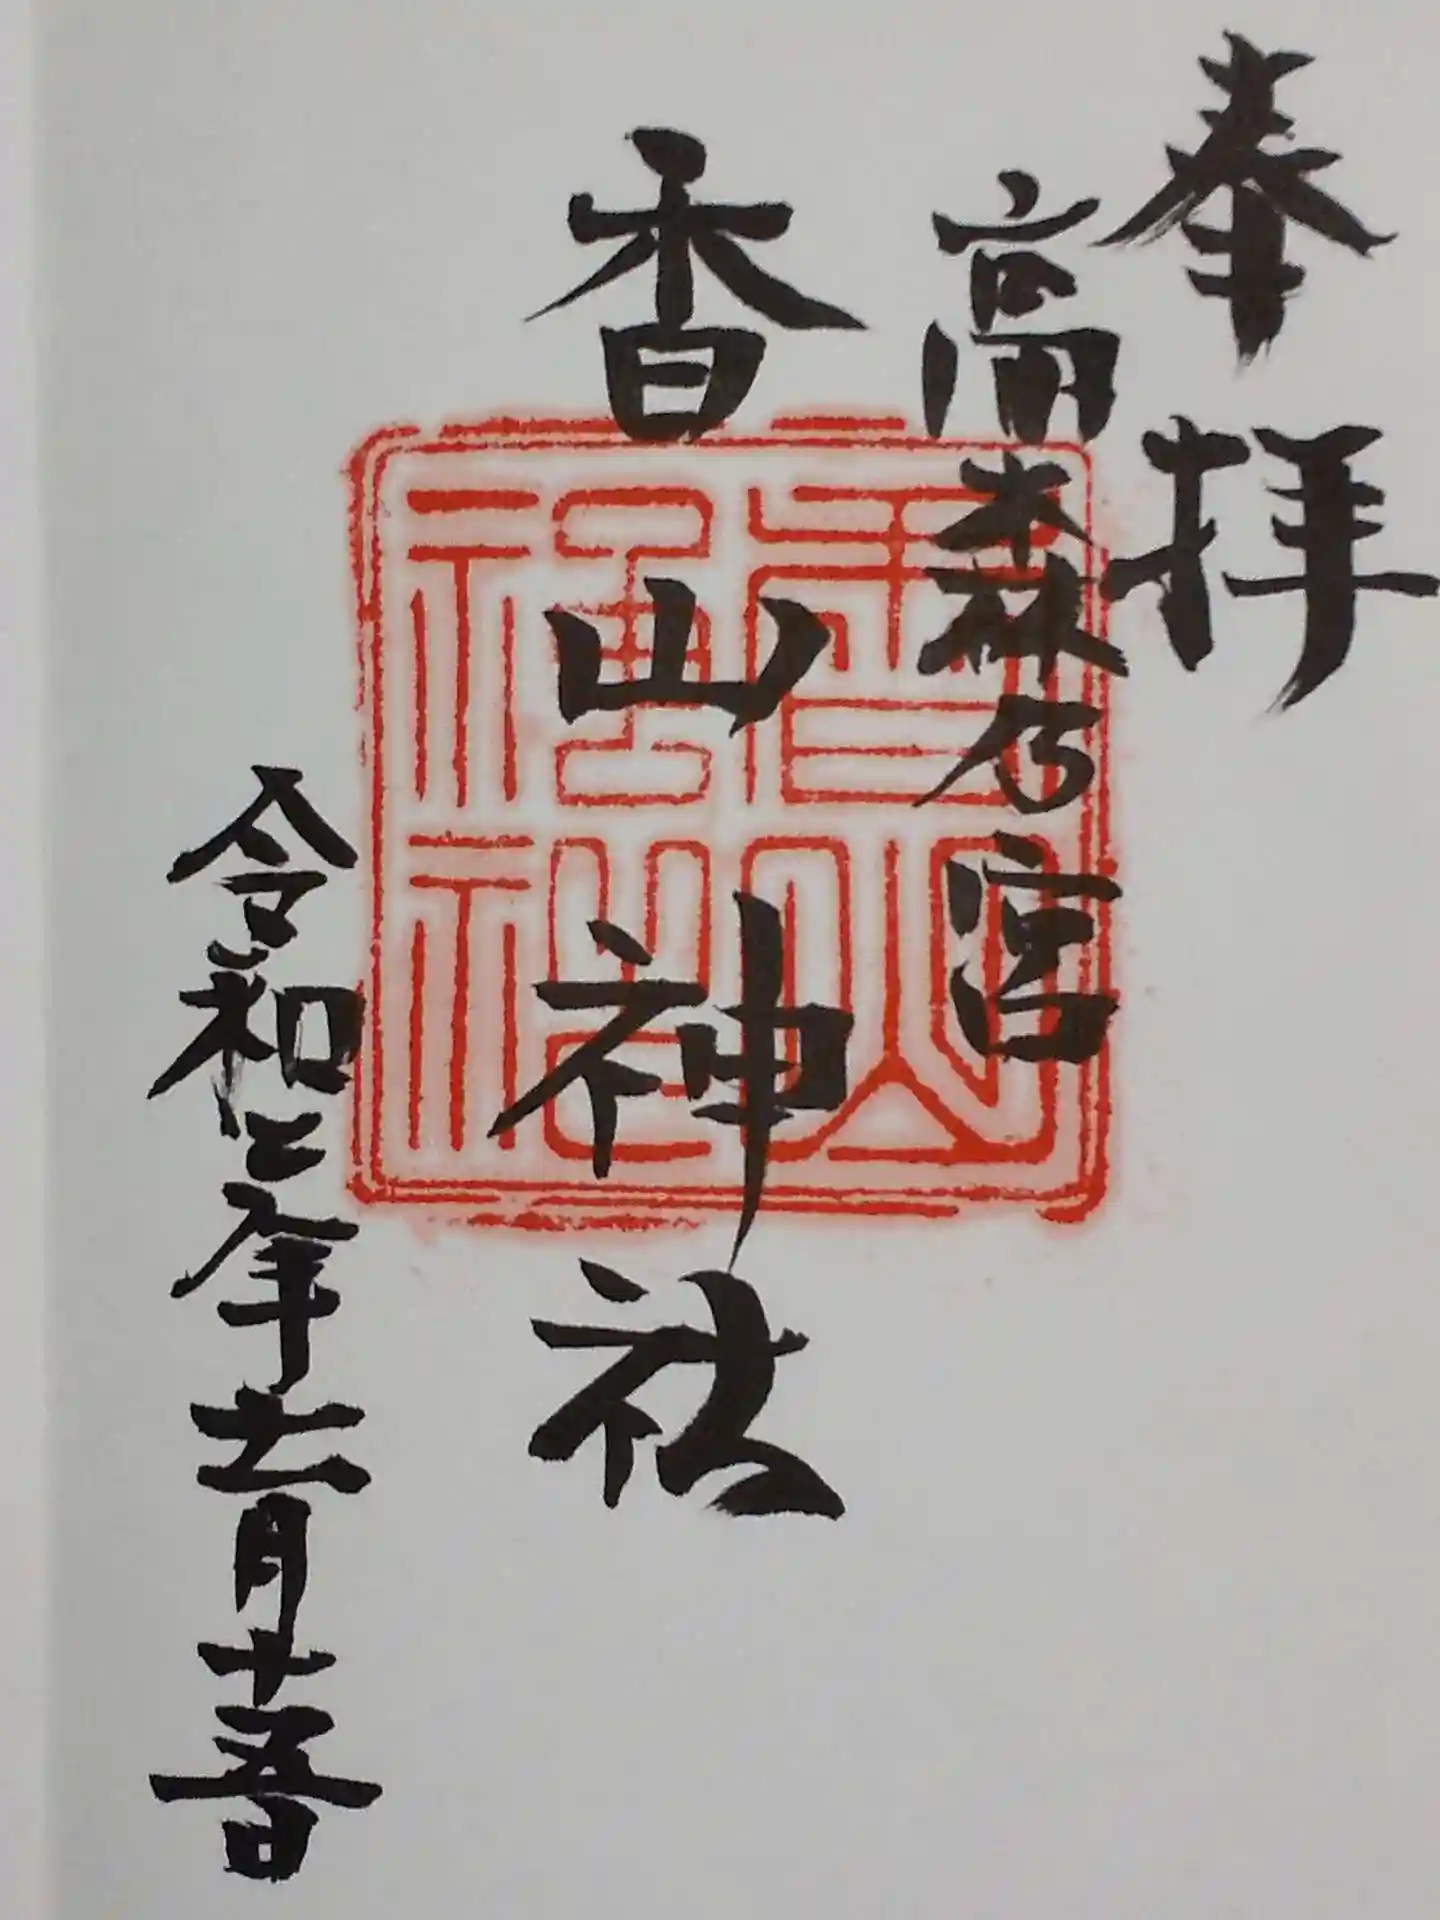 奉拝
高森乃宮
香山神社
令和二年十一月十五日
香山神社